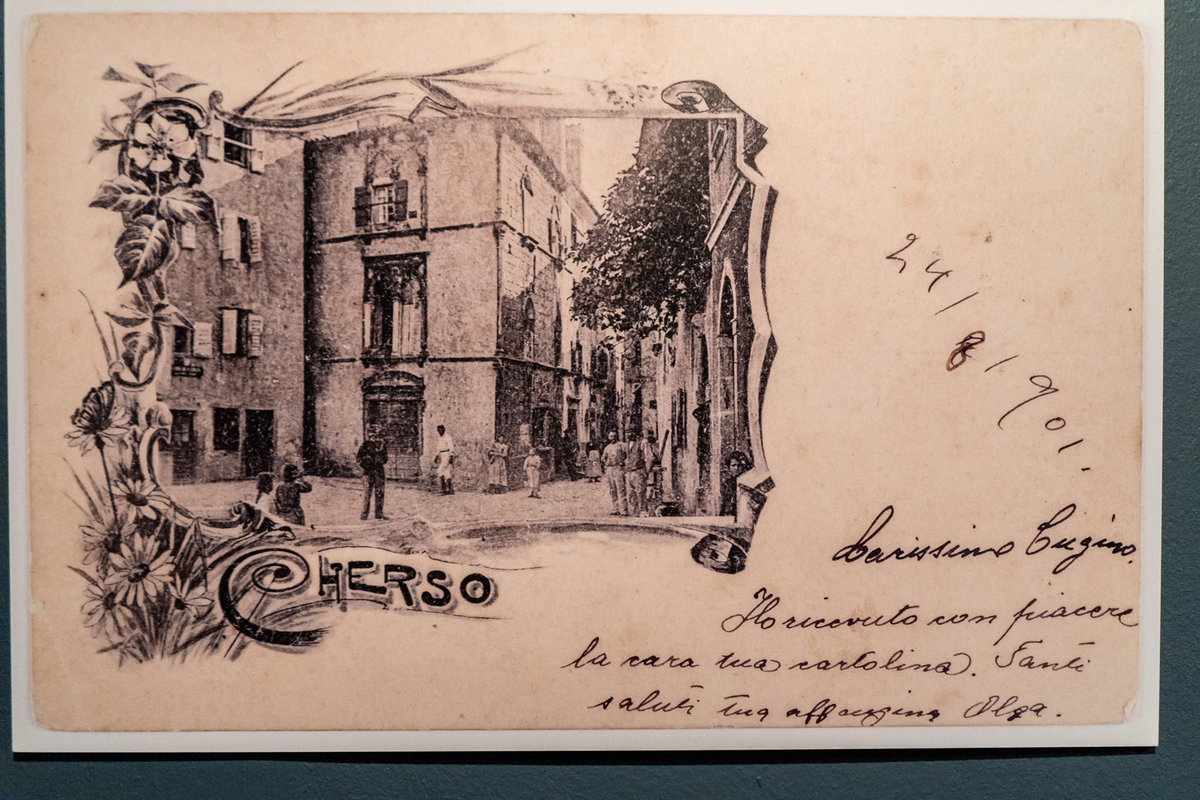 CHERSO
24/8/901.
Carissimo Cugino.
Ho ricevuto con piacere
la cara tua cartolina. Tanti
saluti tua aff cugina Olga.